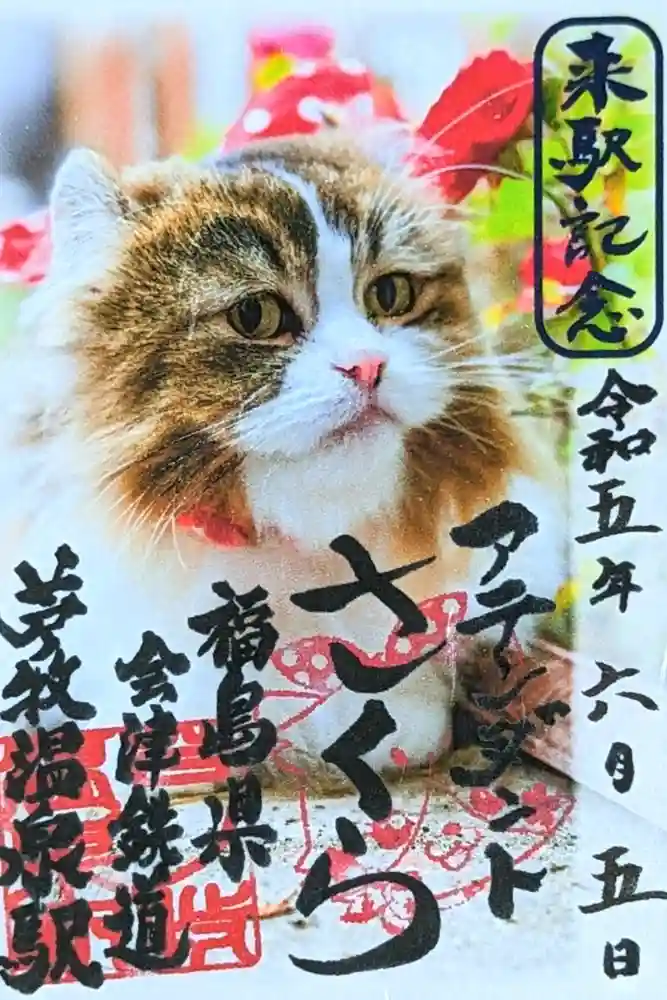 来駅記念
令和五年 六月 五日
アテンダント
さくら
福島県
会津鉄道
芦牧温泉駅